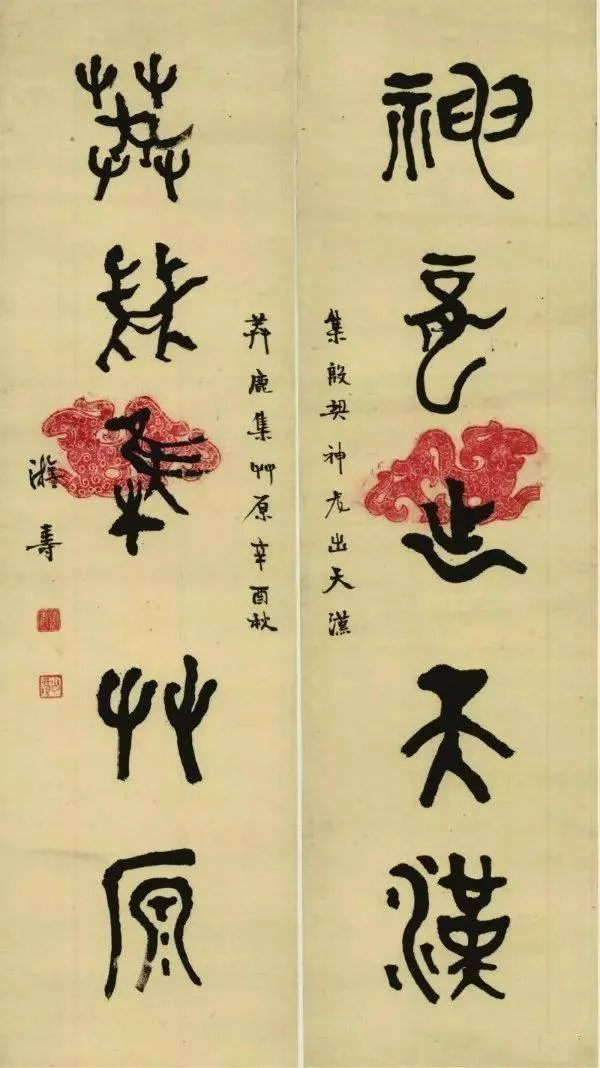 神龙出天漢
集殷契神龙出天漢
莽鹿集艸原
莽鹿集艸原辛酉秋
游寿